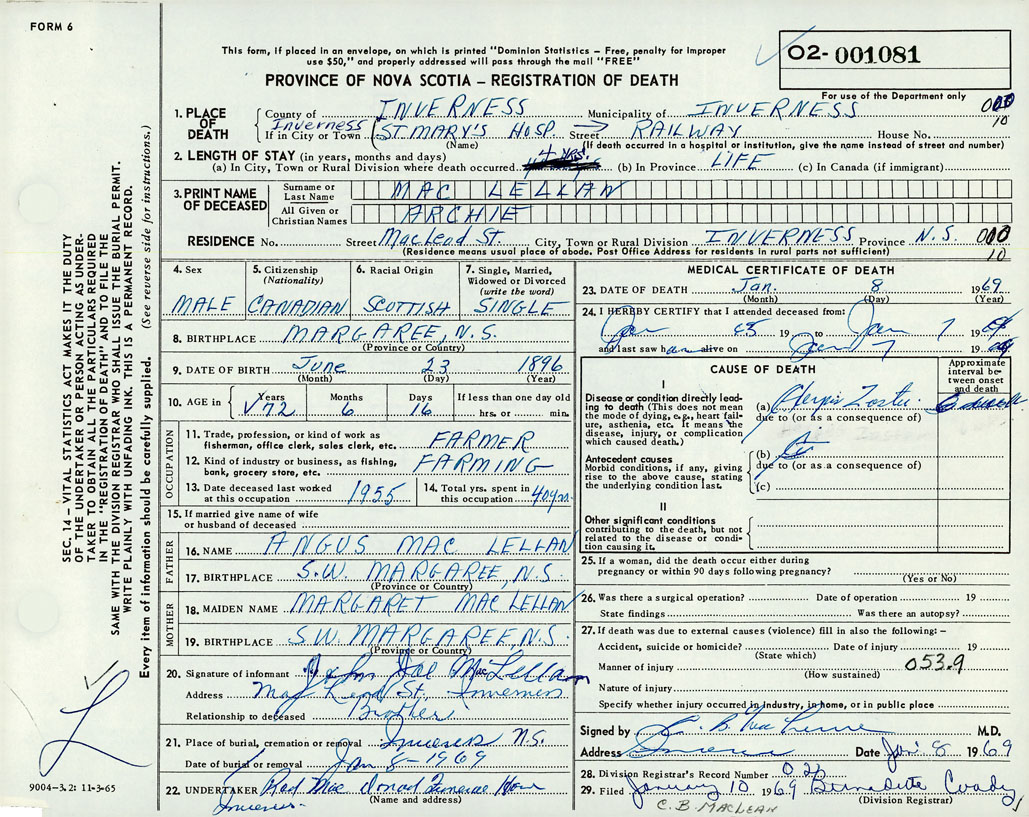 FORM 6
This form, if placed in an envelope, on which is printed "Dominion Statistics – Free, penalty for improper
use $50," and properly addressed will pass through the mail "FREE"
O2- 001081
PROVINCE OF NOVA SCOTIA – REGISTRATION OF DEATH
For use of the Department only
1. PLACE OF DEATH
County of INVERNESS Municipality of INVERNESS
Inverness
If in City or Town ST. MARY'S HOSP. Street RAILWAY House No.
(Name) (If death occurred in a hospital or institution, give the name instead of street and number)
10
2. LENGTH OF STAY (in years, months and days)
(a) In City, Town or Rural Division where death occurred 4 YRS. (b) In Province LIFE (c) In Canada (if immigrant)
3. PRINT NAME OF DECEASED
Surname or Last Name MAC LELLAN
All Given or Christian Names ARCHIE
RESIDENCE No. Street MacLeod St. City, Town or Rural Division INVERNESS Province N.S.
(Residence means usual place of abode. Post Office Address for residents in rural parts not sufficient)
10
4. Sex MALE
5. Citizenship (Nationality) CANADIAN
6. Racial Origin SCOTTISH
7. Single, Married, Widowed or Divorced (write the word) SINGLE
8. BIRTHPLACE MARGAREE, N.S.
(Province or Country)
9. DATE OF BIRTH June 23 1896
(Month) (Day) (Year)
10. AGE in Years 72 Months 6 Days 16 If less than one day old
hrs. or min.
OCCUPATION
11. Trade, profession, or kind of work as
fisherman, office clerk, sales clerk, etc. FARMER
12. Kind of industry or business, as fishing,
bank, grocery store, etc. FARMING
13. Date deceased last worked
at this occupation 1955
14. Total yrs. spent in
this occupation 40 yrs.
15. If married give name of wife
or husband of deceased
FATHER
16. NAME ANGUS MAC LELLAN
17. BIRTHPLACE S.W. MARGAREE, N.S.
(Province or Country)
MOTHER
18. MAIDEN NAME MARGARET MAC LELLAN
19. BIRTHPLACE S.W. MARGAREE, N.S.
(Province or Country)
20. Signature of informant John Joe MacLellan
Address MacLeod St. Inverness
Relationship to deceased Brother
21. Place of burial, cremation or removal Inverness N.S.
Date of burial or removal Jan 8 – 1969
22. UNDERTAKER Rod Mac Donald Funeral Home
(Name and address)
Inverness
MEDICAL CERTIFICATE OF DEATH
23. DATE OF DEATH Jan. 8 1969
(Month) (Day) (Year)
24. I HEREBY CERTIFY that I attended deceased from:
Jan 19 to Jan 7 19
and last saw h alive on Jan 7 19
CAUSE OF DEATH
Approximate interval between onset and death
I
Disease or condition directly leading
to death (This does not mean
the mode of dying, e.g., heart failure,
asthenia, etc. It means the
disease, injury, or complication
which caused death.)
(a) Herpes Zoster
due to (or as a consequence of)
Antecedent causes
Morbid conditions, if any, giving
rise to the above cause, stating
the underlying condition last.
(b)
due to (or as a consequence of)
(c)
II
Other significant conditions
contributing to the death, but not
related to the disease or condition
causing it.
25. If a woman, did the death occur either during
pregnancy or within 90 days following pregnancy?
(Yes or No)
26. Was there a surgical operation? Date of operation 19
State findings Was there an autopsy?
27. If death was due to external causes (violence) fill in also the following: –
Accident, suicide or homicide? Date of injury 19
(State which)
Manner of injury 053.9
(How sustained)
Nature of injury
Specify whether injury occurred in industry, in home, or in public place
Signed by M.D.
Address Inverness Date Jan 8 1969
28. Division Registrar's Record Number
29. Filed January 10 1969 Bernadette Coady
(Division Registrar)
C. B. MACLEAN
SEC. 14 – VITAL STATISTICS ACT MAKES IT THE DUTY
OF THE UNDERTAKER OR PERSON ACTING AS UNDERTAKER
TO OBTAIN ALL THE PARTICULARS REQUIRED
IN THE "REGISTRATION OF DEATH" AND TO FILE THE
SAME WITH THE DIVISION REGISTRAR WHO SHALL ISSUE THE BURIAL PERMIT.
WRITE PLAINLY WITH UNFADING INK. THIS IS A PERMANENT RECORD.
Every item of information should be carefully supplied. (See reverse side for instructions.)
9004-3.2: 11-3-65